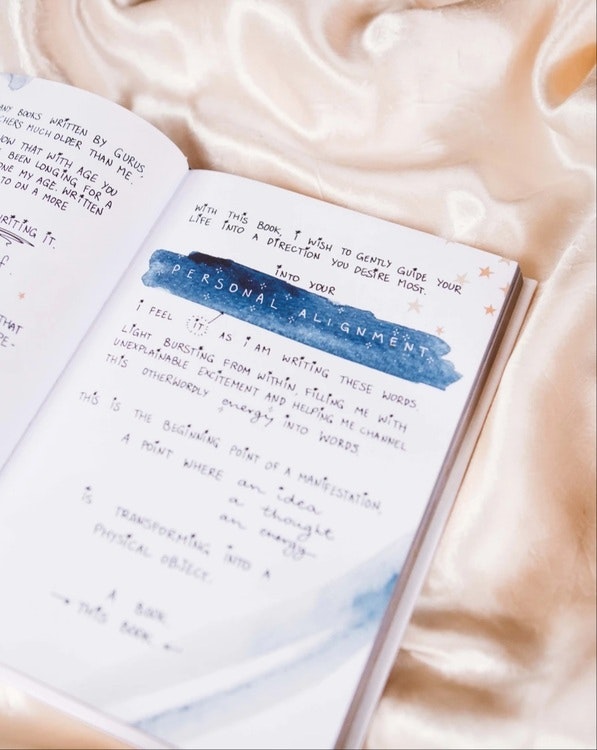 ANY BOOKS WRITTEN BY GURUS
CHERS MUCH OLDER THAN ME.
OW THAT WITH AGE YOU
BEEN LONGING FOR A
ONE MY AGE. WRITTEN
TO ON A MORE
WRITING IT.
?
f.
THAT
PE-
WITH THIS BOOK, I WISH TO GENTLY GUIDE YOUR
LIFE INTO A DIRECTION YOU DESIRE MOST.
INTO YOUR
PERSONAL ALIGNMENT.
I FEEL IT AS I AM WRITING THESE WORDS.
LIGHT BURSTING FROM WITHIN, FILLING ME WITH
UNEXPLAINABLE EXCITEMENT AND HELPING ME CHANNEL
THIS OTHERWORDLY energy INTO WORDS.
THIS IS THE BEGINNING POINT OF A MANIFESTATION,
A POINT WHERE an idea
a thought
an energy
IS TRANSFORMING INTO A
PHYSICAL OBJECT.
A BOOK.
→ THIS BOOK. ←